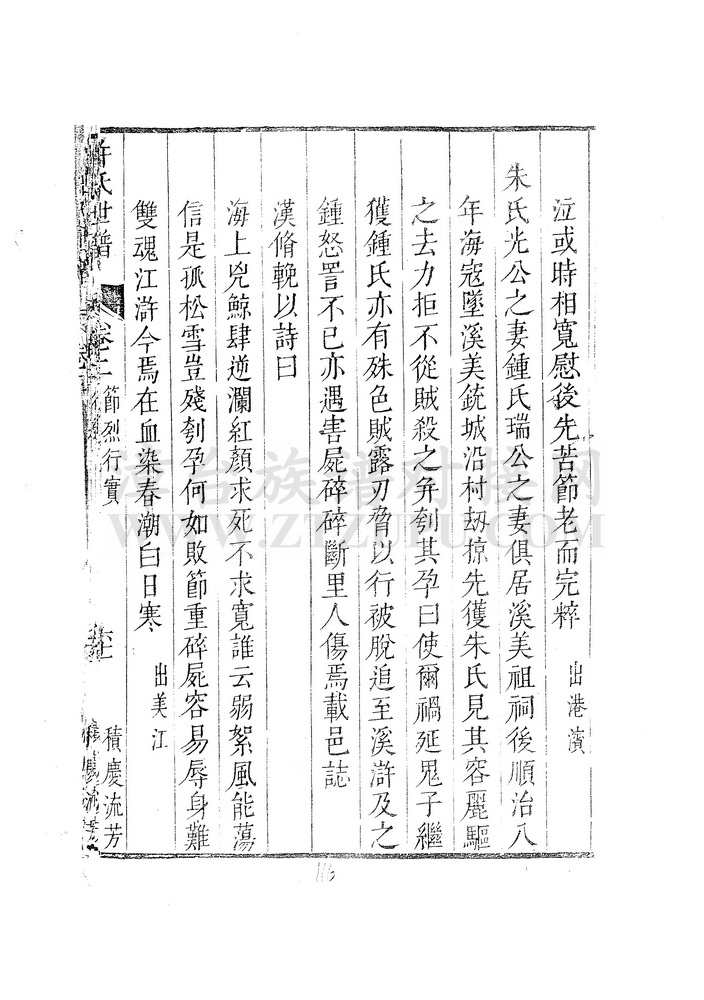 泣或時相寬慰後先苦節老而完粹 出港濱
朱氏光公之妻鍾氏瑞公之妻俱居溪美祖祠後順治八
年海寇墜溪美銃城沿村刼掠先獲朱氏見其容麗驅
之去力拒不從賊殺之并刳其孕曰使爾禍延鬼子繼
獲鍾氏亦有殊色賊露刃脅以行被脫追至溪滸及之
鍾怒詈不已亦遇害屍碎碎斷里人傷焉載邑誌
漢脩輓以詩曰
海上兇鯨肆逆瀾紅顏求死不求寬誰云弱絮風能蕩
信是孤松雪豈殘刳孕何如敗節重碎屍容易辱身難
雙魂江滸今焉在血染春潮白日寒 出美江
許氏世譜 卷之 節烈行實 積慶流芳
臺台族譜对接网
WWW.ZTZUPU.COM
116